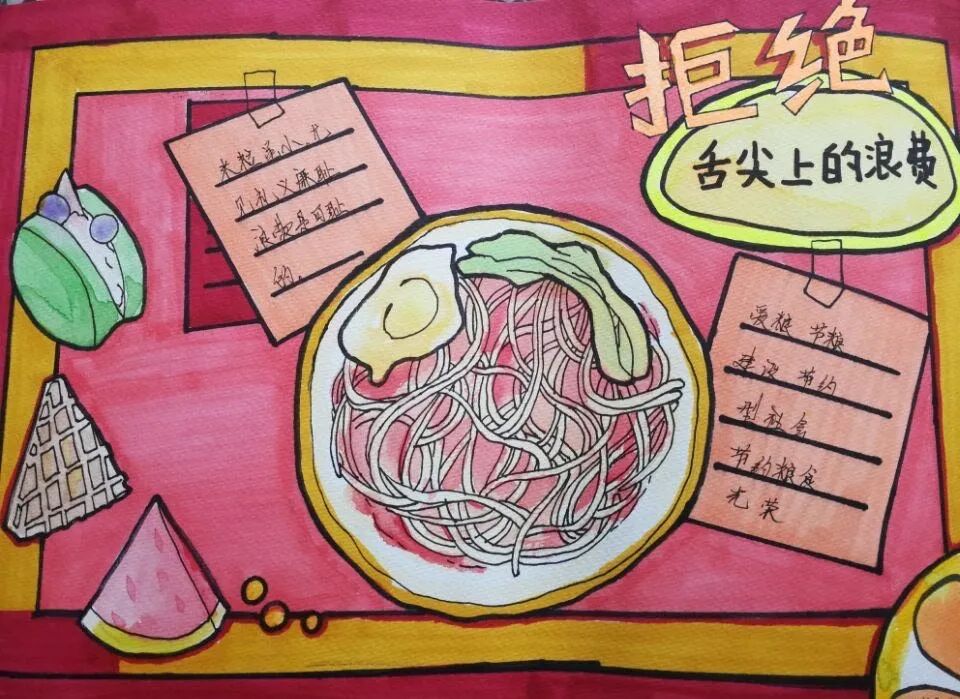 拒绝
舌尖上的浪费
米粒虽小尤
见礼义廉耻
浪费是可耻
的。
爱粮 节粮
建设 节约
型社会
节约粮食
光荣